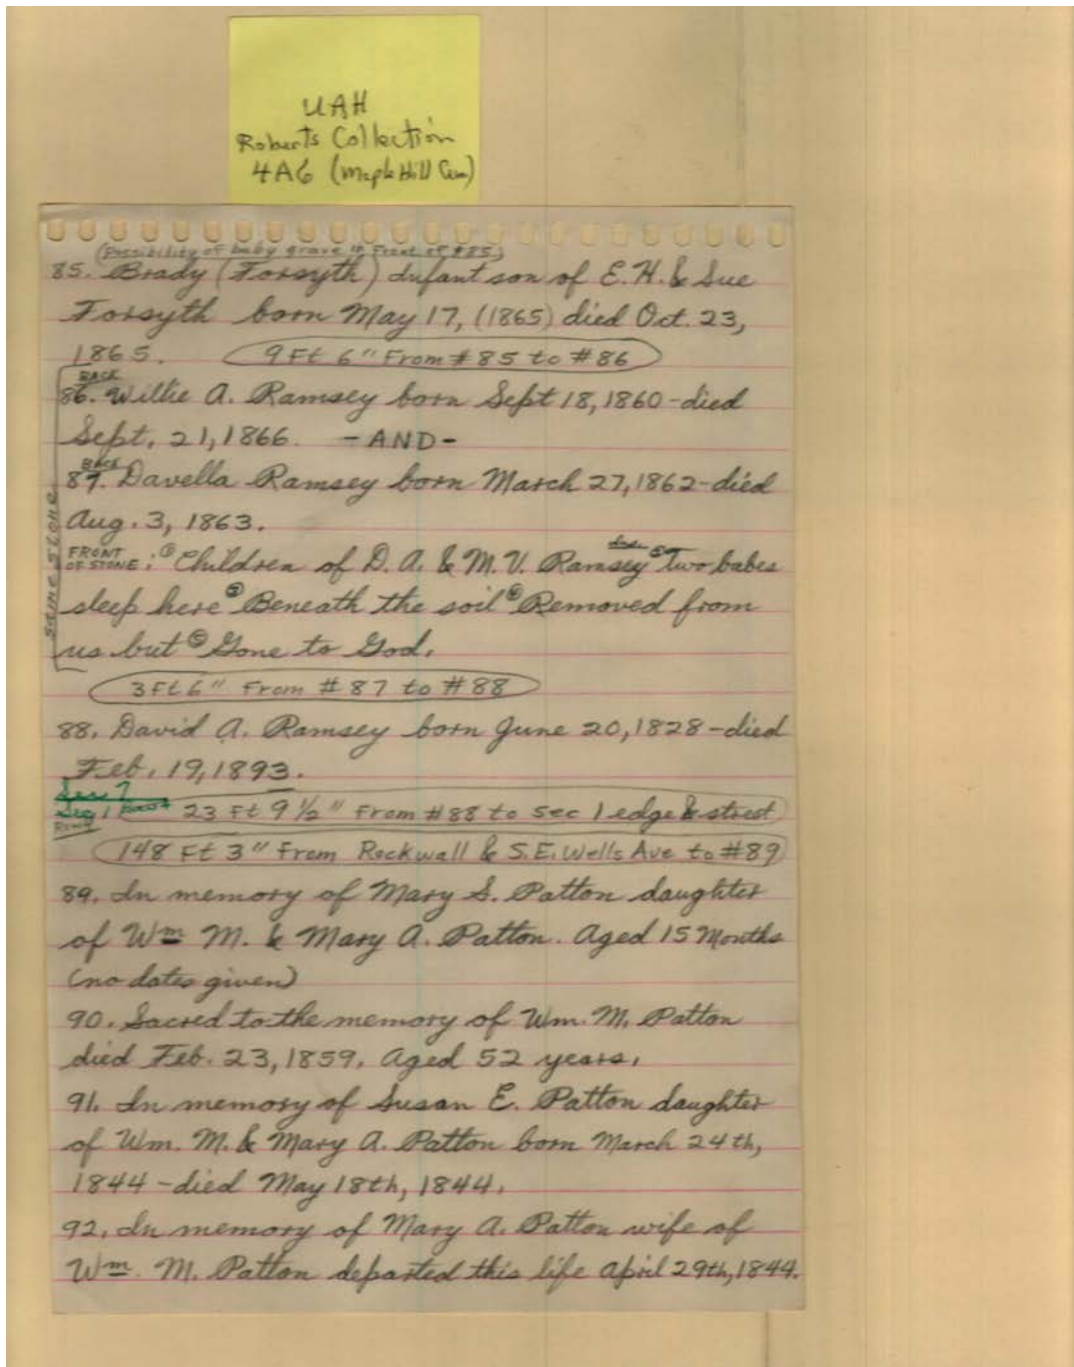 UAH
Roberts Collection
4A6 (Maple Hill Cem)
(Possibility of baby grave in Front of #85)
85. Brady (Forsyth) Infant son of E.H. & Sue
Forsyth born May 17, (1865) died Oct. 23,
1865. 9 Ft 6" From #85 to #86
BACK
86. Willie A. Ramsey born Sept 18, 1860-died
Sept. 21, 1866. -AND-
BACK
87. Davella Ramsey born March 27, 1862-died
Aug. 3, 1863.
SAME STONE
FRONT
OF STONE: ① Children of D. A. & M. V. Ramsey Two babes
sleep here Beneath the soil Removed from
us but Gone to God.
3 Ft 6" From #87 to #88
88. David A. Ramsey born June 20, 1828-died
Feb. 19, 1893.
23 Ft 9 1/2" From #88 to sec 1 edge & street
148 Ft 3" From Rockwall & S.E. Wells Ave to #89
89. In memory of Mary S. Patton daughter
of Wm M. & Mary A. Patton. Aged 15 Months
(no dates given)
90. Sacred to the memory of Wm. M. Patton
died Feb. 23, 1859. Aged 52 years.
91. In memory of Susan E. Patton daughter
of Wm. M. & Mary A. Patton born March 24th,
1844-died May 18th, 1844.
92. In memory of Mary A. Patton wife of
Wm. M. Patton departed this life April 29th, 1844.